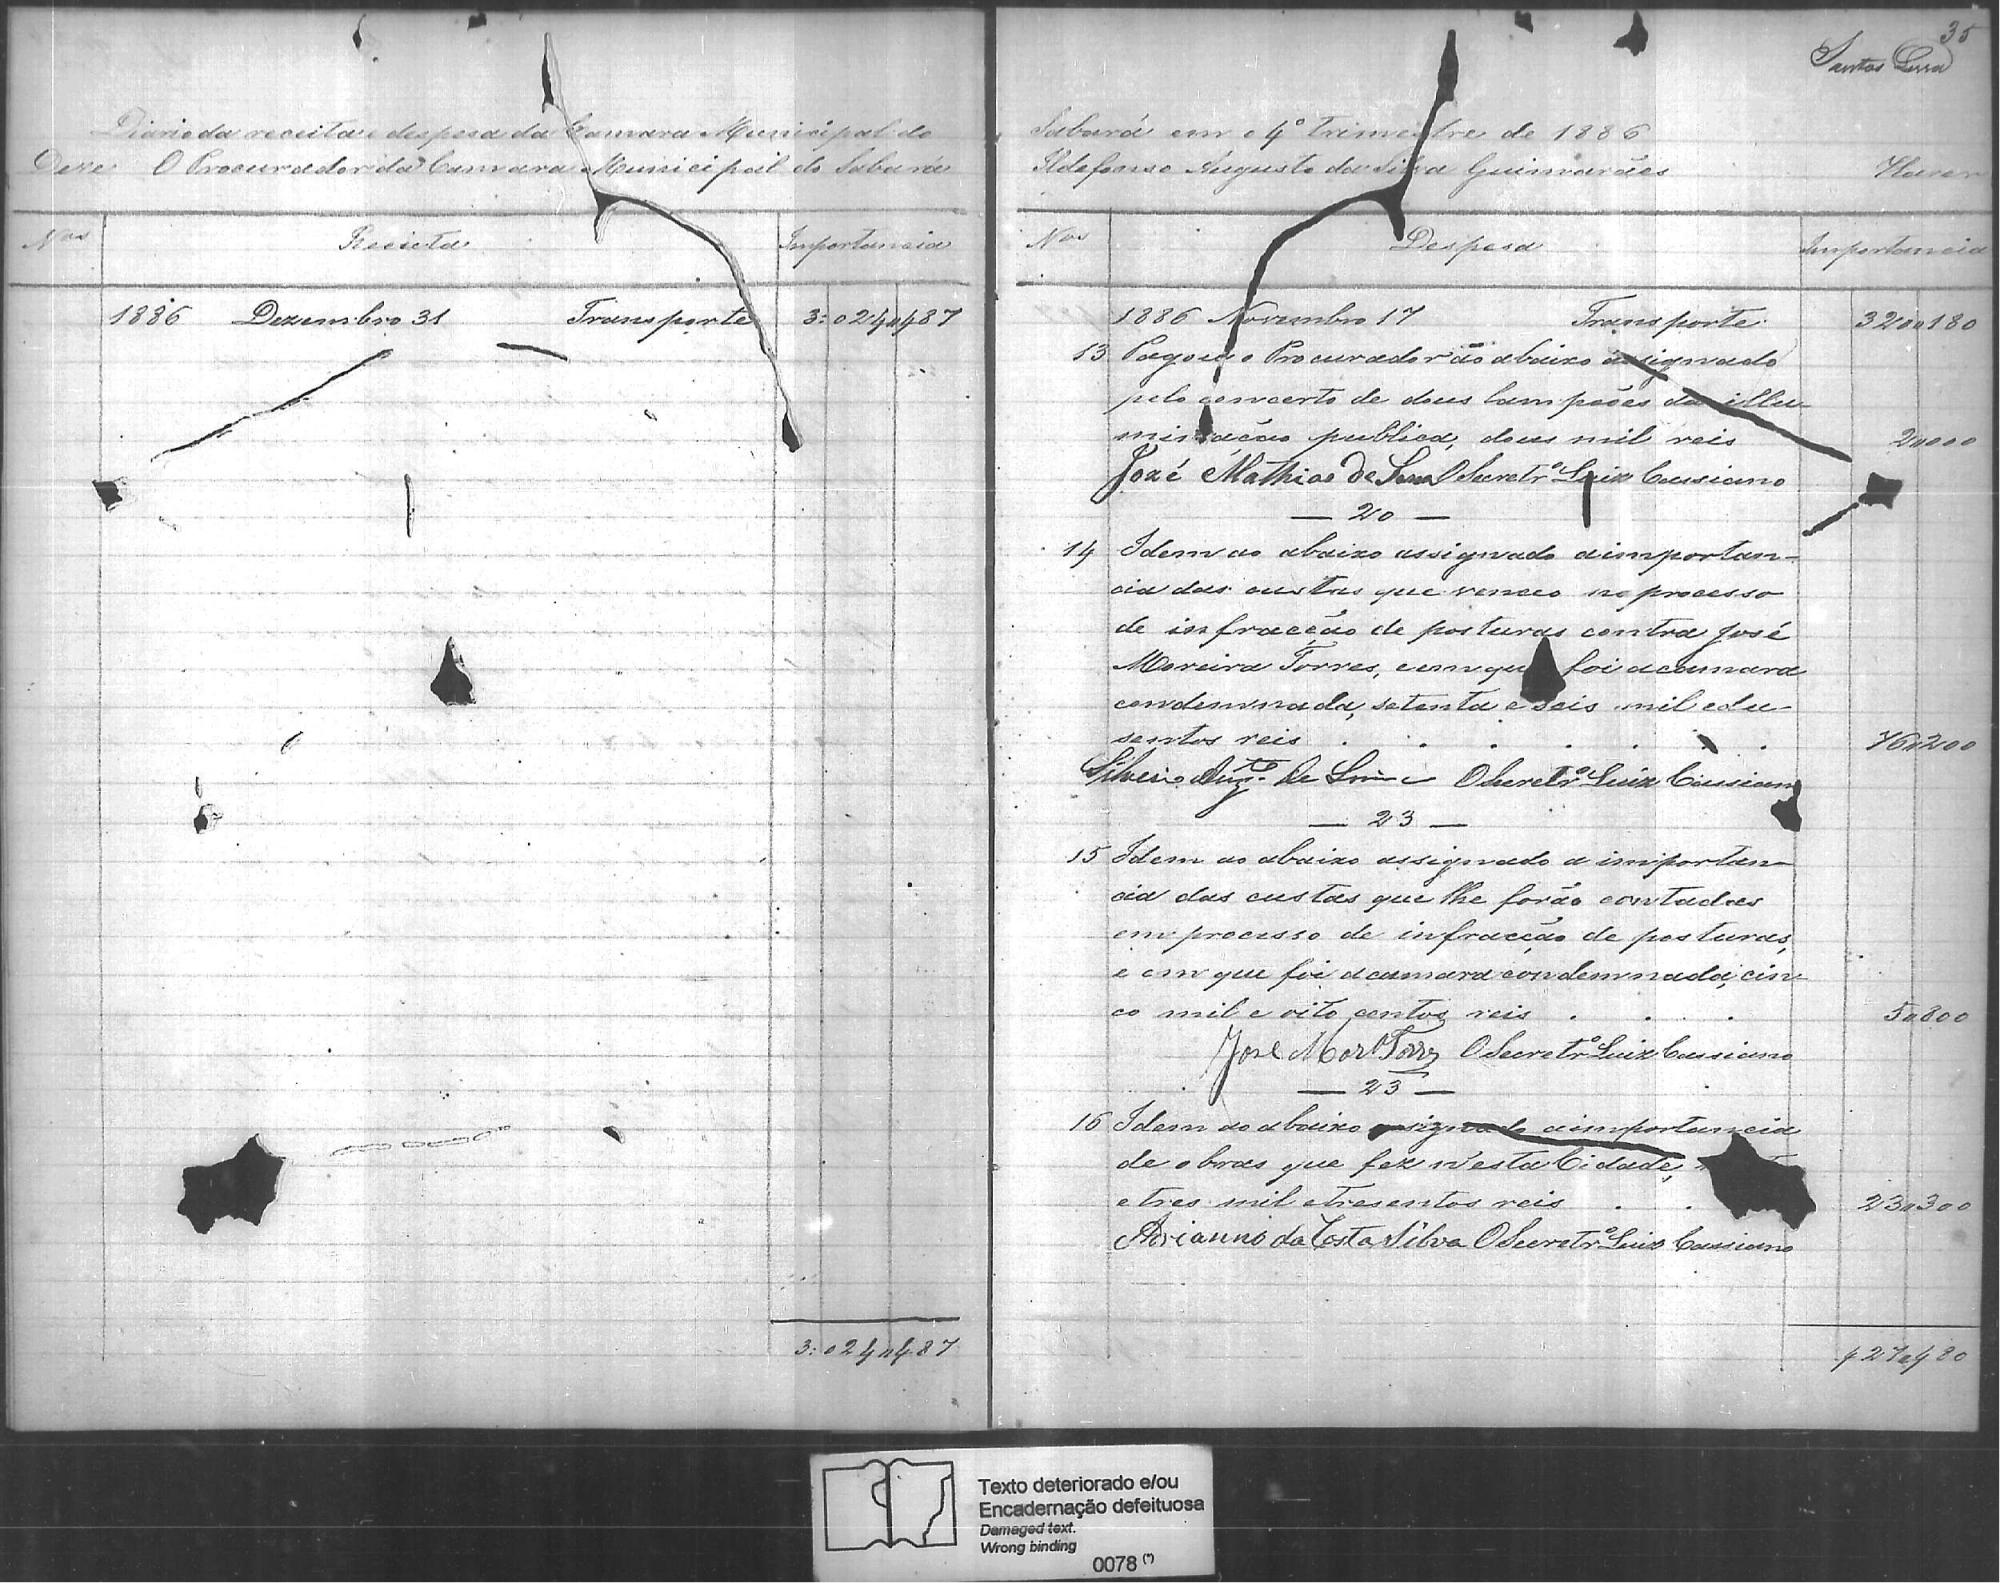 Diario da receita e despesa da Camara Municipal do
Deve O Procurador da Camara Municipal do Sabará
Nos Receita Importancia
1886 Dezembro 31 Transporte 3:024"487
3:024"487
35
Santos Lima
Sabará em o 4º trimestre de 1886
Ildefonso Augusto da Silva Guimarães Haver
Nos Despesa Importancia
1886 Novembro 17 Transporte 320"180
13 Pagou o Procurador ao abaixo assignado
pelo concerto de dous lampeões da illu-
minação publica, dous mil reis 2"000
José Mathias de O Secretrº Luiz Cassiano
— 20 —
14 Idem ao abaixo assignado a importan-
cia das custas que venceo no processo
de infracção de posturas contra José
Moreira Torres, e em que foi a camara
condemnada, setenta e seis mil e du-
sentos reis . . . . . . . 76"200
Silverio Augto de O Secretrº Luiz Cassiano
— 23 —
15 Idem ao abaixo assignado a importan-
cia das custas que lhe forão contadas
em processo de infracção de posturas,
e em que foi a camara condemnada, cin-
co mil e oito centos reis . . . 5"800
José Morª Torres O Secretrº Luiz Cassiano
— 23 —
16 Idem ao abaixo assignado a importancia
de obras que fez n'esta Cidade,
e tres mil e tresentos reis . . 23"300
Adrianno da Costa Silva O Secretrº Luiz Cassiano
427"480
Texto deteriorado e/ou
Encadernação defeituosa
Damaged text.
Wrong binding
0078 (*)